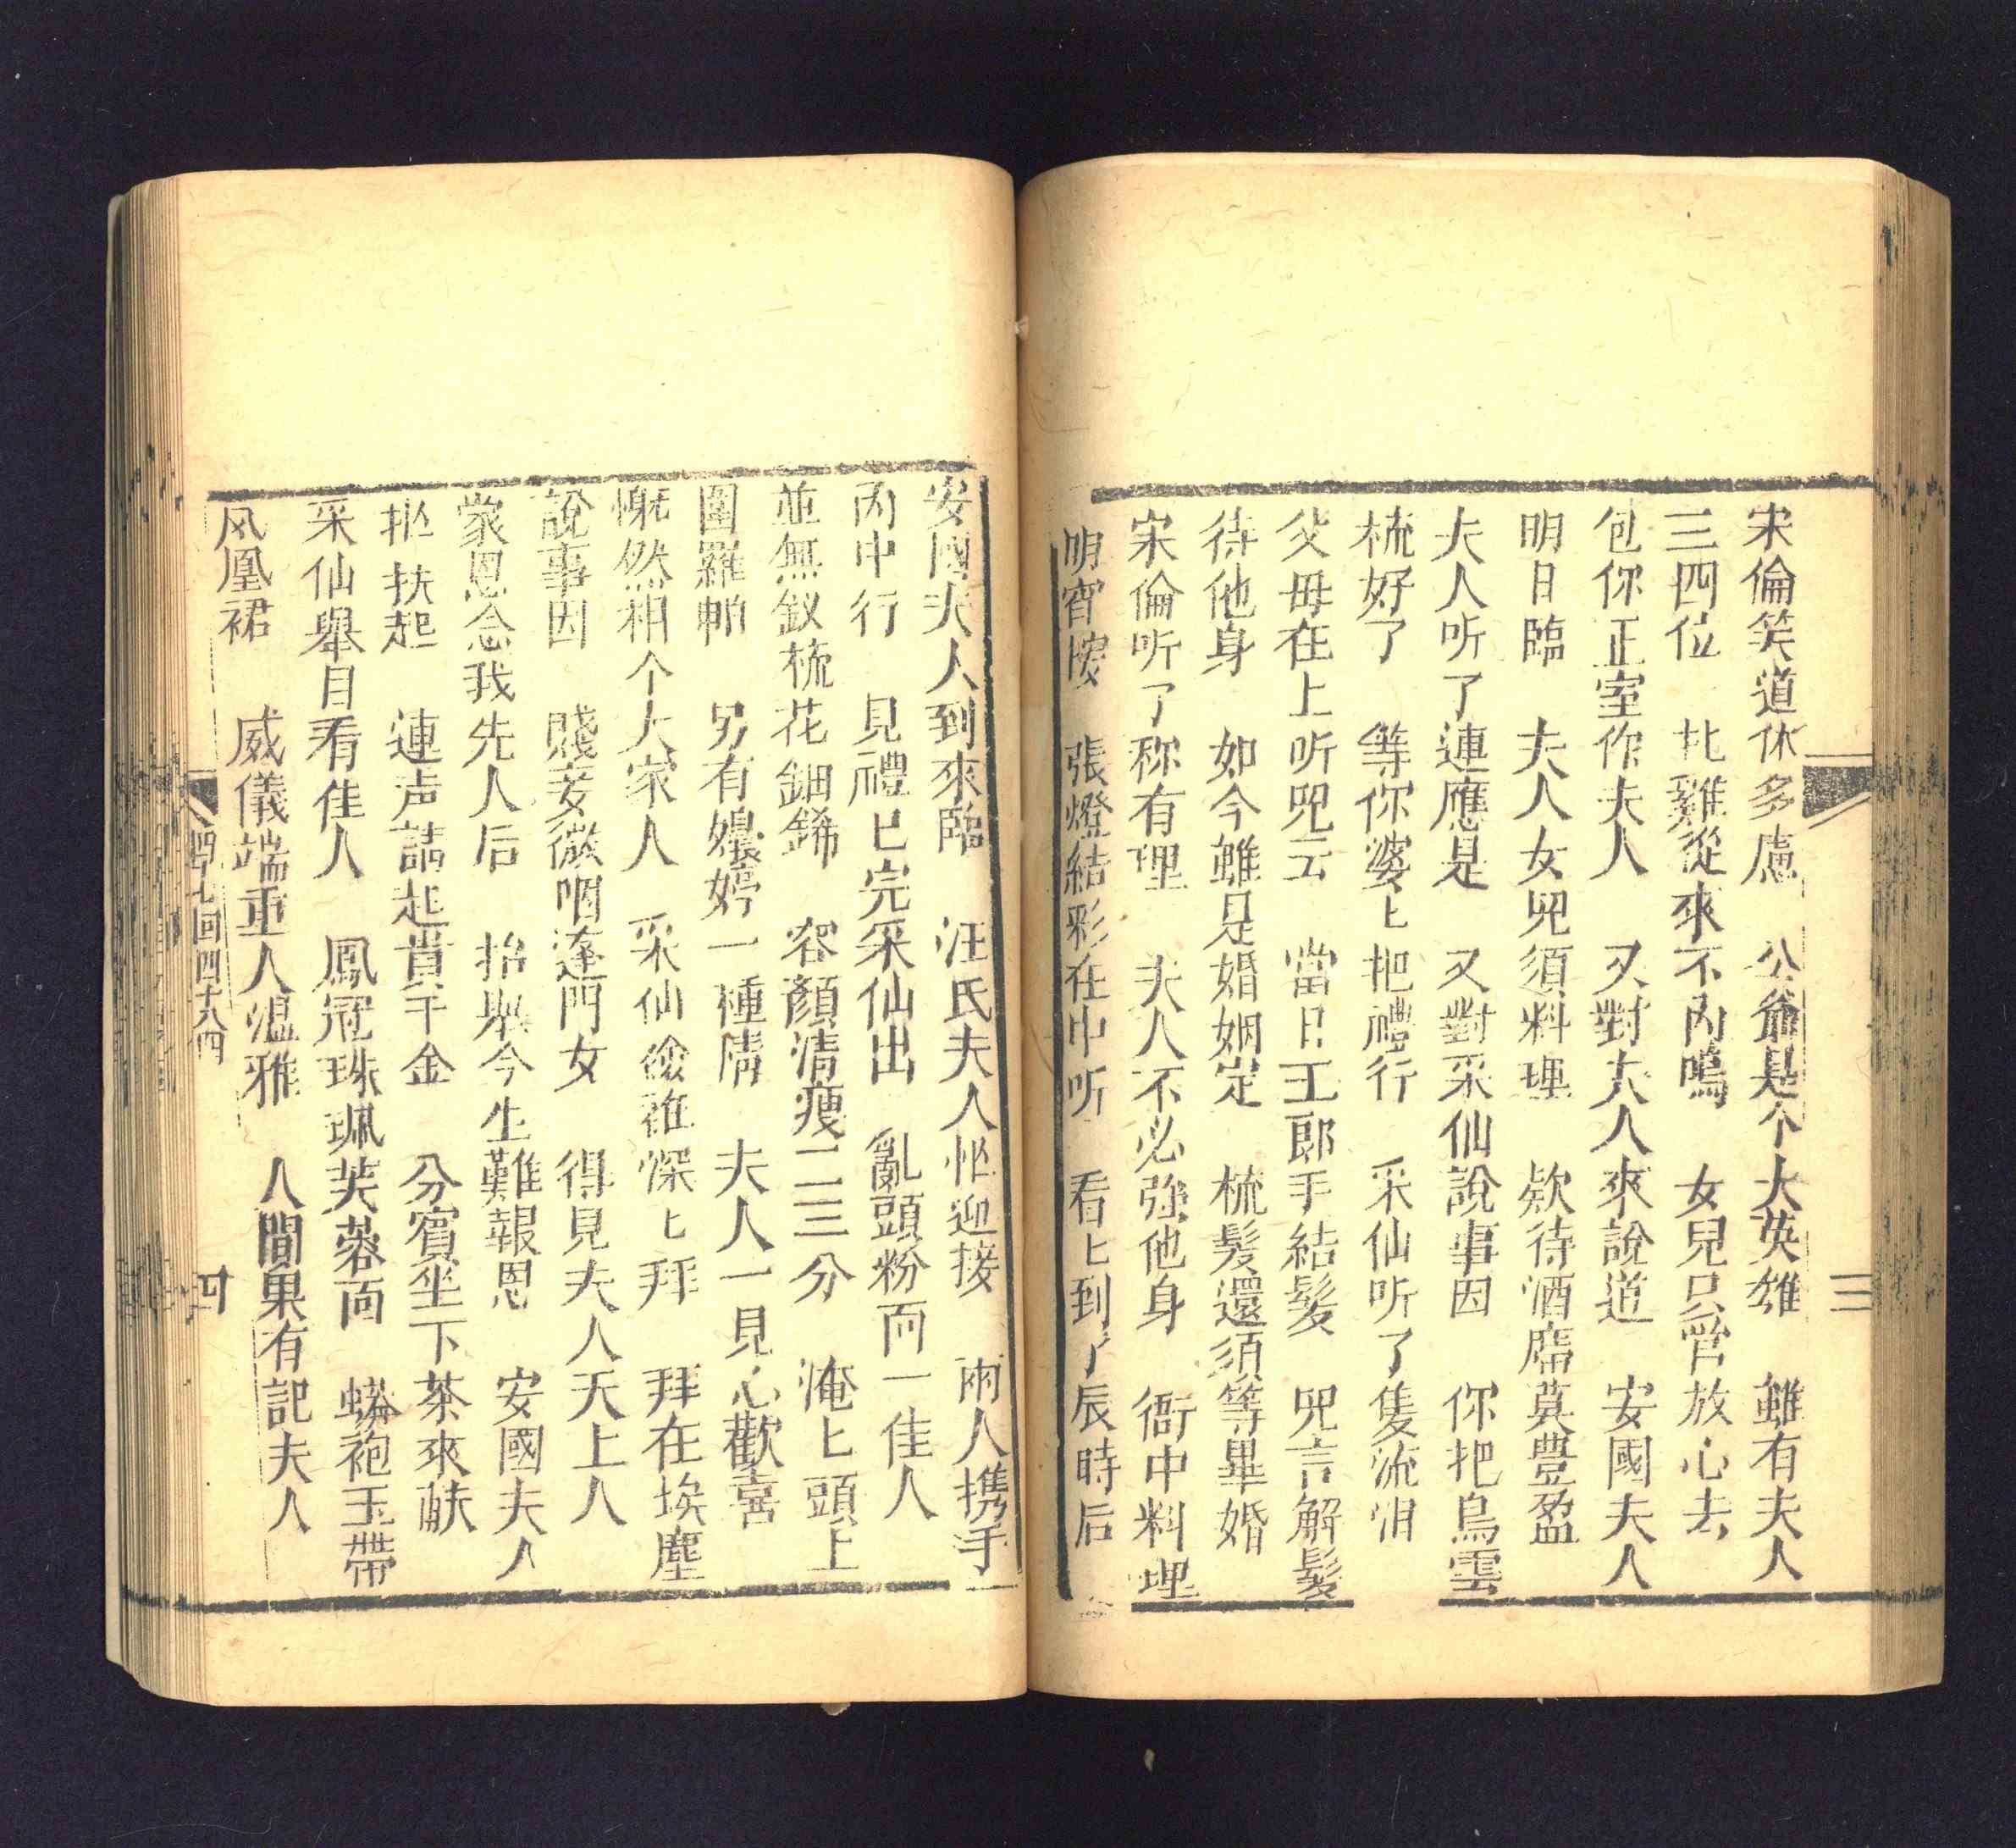 宋倫笑道休多慮 公爺是个大英雄 虽有夫人
三四位 牝雞從來不內鳴 女兒只管放心去
包你正室作夫人 又對夫人來說道 安國夫人
明日臨 夫人女兒須料理 欵待酒席莫豊盈
夫人听了連應是 又對采仙說事因 你把烏雲
梳好了 等你婆匕把禮行 采仙听了隻流泪
父母在上听兒云 當日王郎手結髮 兒言解髮
待他身 如今雖是婚姻定 梳髮還須等畢婚
宋倫听了称有理 夫人不必強他身 衙中料理
明宵 張燈結彩在中听 看匕到了辰時后
三
安國夫人到來臨 汪氏夫人忙迎接 兩人携手
內中行 見禮已完采仙出 亂頭粉面一佳人
並無釵梳花鈿 容顏清瘦二三分 淹匕頭上
圍羅帕 另有嬝婷一種情 夫人一見心歡喜
慨然相个大家人 采仙 深匕拜 拜在埃塵
說事因 賤妾微 蓬門女 得見夫人天上人
蒙恩念我先人后 抬舉今生難報恩 安國夫人
忙扶起 連声請起貴千金 分賓坐下茶來献
采仙舉目看佳人 鳳冠珠珮芙蓉面 蟒袍玉帶
风凰裙 威儀端重人温雅 人間果有記夫人
七回 四
四